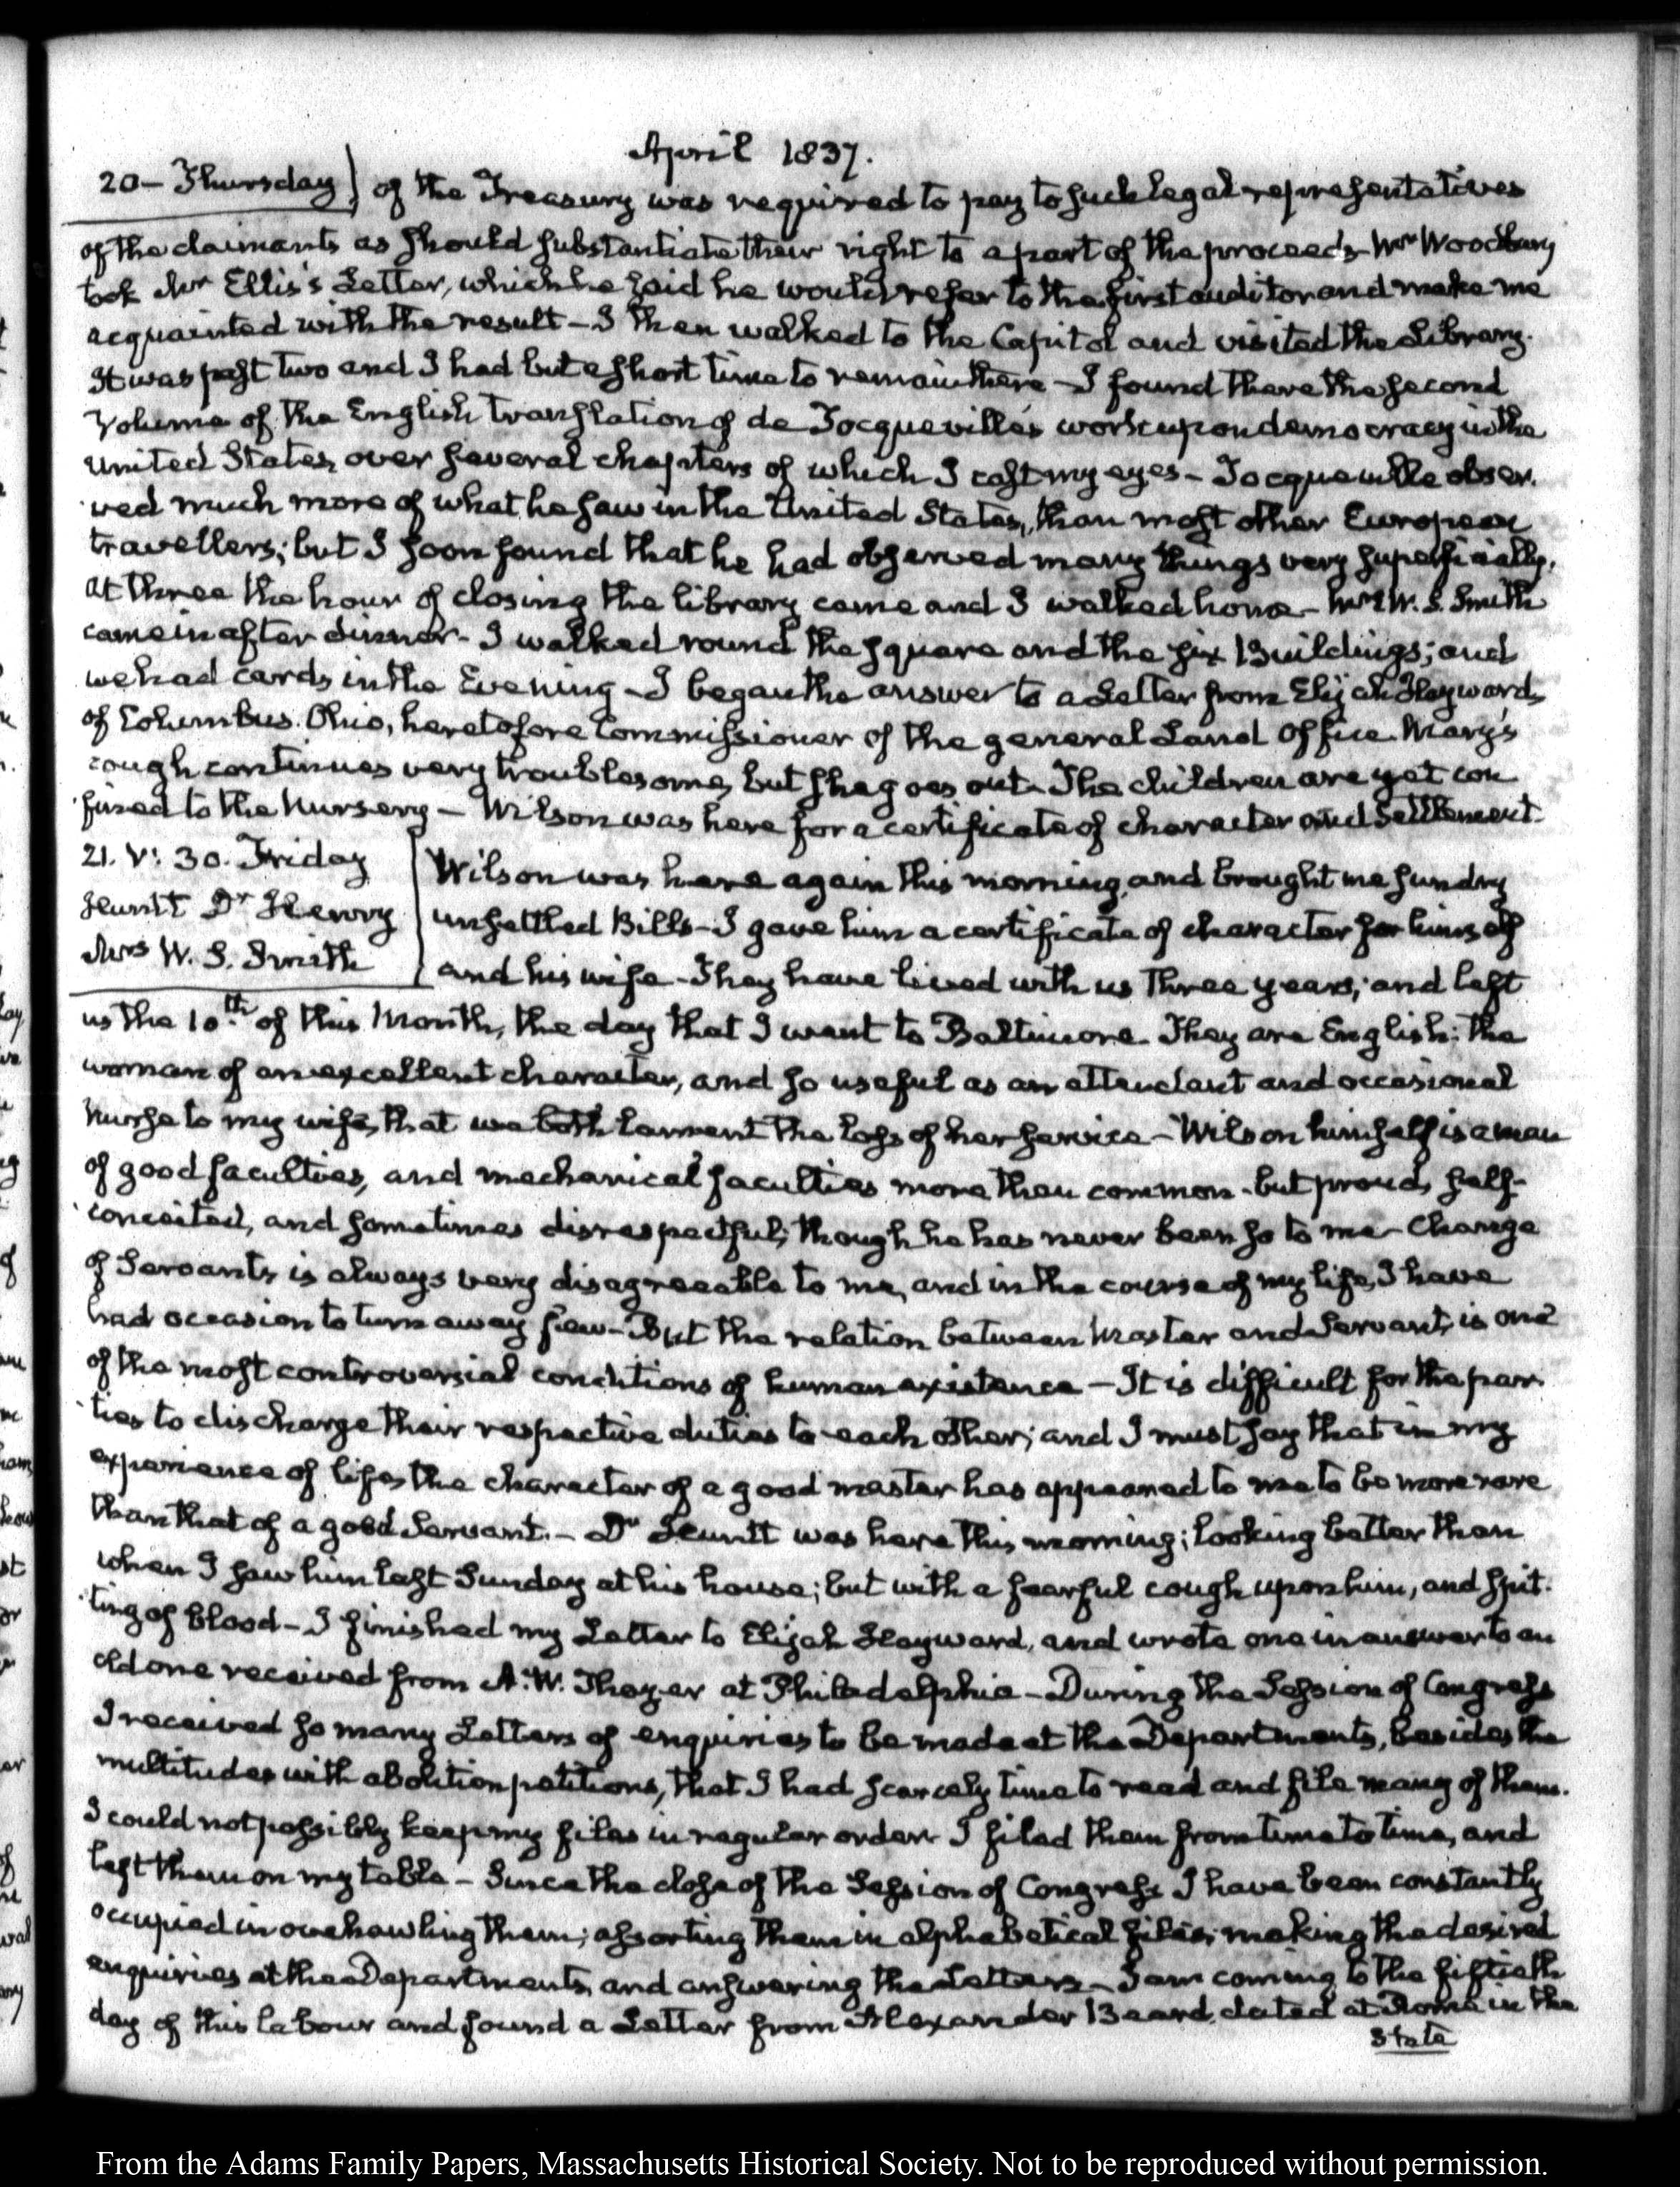 April 1837.
20 – Thursday) of the Treasury was required to pay to such legal representatives
of the claimants as should substantiate their right to a part of the proceeds – Mr Woodbury
took Mr Ellis's Letter, which he said he would refer to the first auditor and make me
acquainted with the result – I then walked to the Capitol and visited the Library.
It was past two and I had but a short time to remain there – I found there the second
volume of the English translation of de Tocqueville's work upon democracy in the
United States, over several chapters of which I cast my eyes – Tocqueville obser-
ved much more of what he saw in the United States, than most other European
travellers; but I soon found that he had observed many things very superficially.
At three the hour of closing the library came and I walked home – Mrs W. S. Smith
came in after dinner – I walked round the square and the six Buildings; and
we had cards in the Evening – I began the answer to a Letter from Elijah Hayward,
of Columbus. Ohio, heretofore Commissioner of the general Land Office. Mary's
cough continues very troublesome, but she goes out. The children are yet con
fined to the Nursery – Wilson was here for a certificate of character and Settlement.
21. V: 30. Friday
Huntt Dr Henry
Mrs W. S. Smith
Wilson was here again this morning, and brought me sundry
unsettled Bills – I gave him a certificate of character for himself
and his wife – They have lived with us three years; and left
us the 10th of this Month, the day that I went to Baltimore. They are English: the
woman of an excellent character, and so useful as an attendant and occasional
nurse to my wife, that we both lament the loss of her service – Wilson himself is a man
of good faculties, and mechanical faculties more than common – but proud, self-
conceited, and sometimes disrespectful; though he has never been so to me – Change
of Servants is always very disagreeable to me, and in the course of my life, I have
had occasion to turn away few – But the relation between Master and Servant, is one
of the most controversial conditions of human existence – It is difficult for the par-
ties to discharge their respective duties to each other; and I must say that in my
experience of life, the character of a good master has appeared to me to be more rare
than that of a good Servant. – Dr Huntt was here this morning; looking better than
when I saw him last Sunday at his house; but with a fearful cough upon him, and spit-
ting of blood – I finished my Letter to Elijah Hayward, and wrote one in answer to an
old one received from A. W. Thayer at Philadelphia – During the Session of Congress
I received so many Letters of enquiries to be made at the Departments, besides the
multitudes with abolition petitions, that I had scarcely time to read and file many of them.
I could not possibly keep my files in regular order. I filed them from time to time, and
left them on my table – Since the close of the Session of Congress I have been constantly
occupied in overhawling them; assorting them in alphabetical files; making the desired
enquiries at the Departments, and answering the Letters – I am coming to the fiftieth
day of this labour and found a Letter from Alexander Beard, dated at Rome in the
State
From the Adams Family Papers, Massachusetts Historical Society. Not to be reproduced without permission.